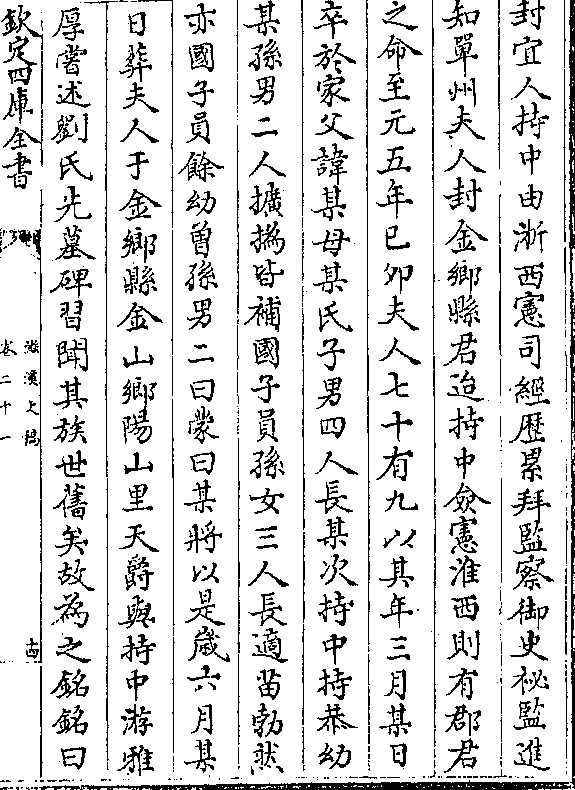 封宜人持中由浙西憲司經歴累拜監察御史祕監進
知單州夫人封金鄉縣君迨持中僉憲淮西則有郡君
之命至元五年己夘夫人七十有九以其年三月某日
卒於家父諱某母某氏子男四人長某次持中持恭幼
某孫男二人擴撝皆補國子員孫女三人長適苗勃然
亦國子員餘幼曾孫男二曰蒙曰某將以是歲六月某
日葬夫人于金鄉縣金山鄉陽山里天爵與持中游雅
厚嘗述劉氏先墓碑習聞其族世舊矣故為之銘銘曰
欽定四庫全書
滋溪文稿
卷二十一
十四